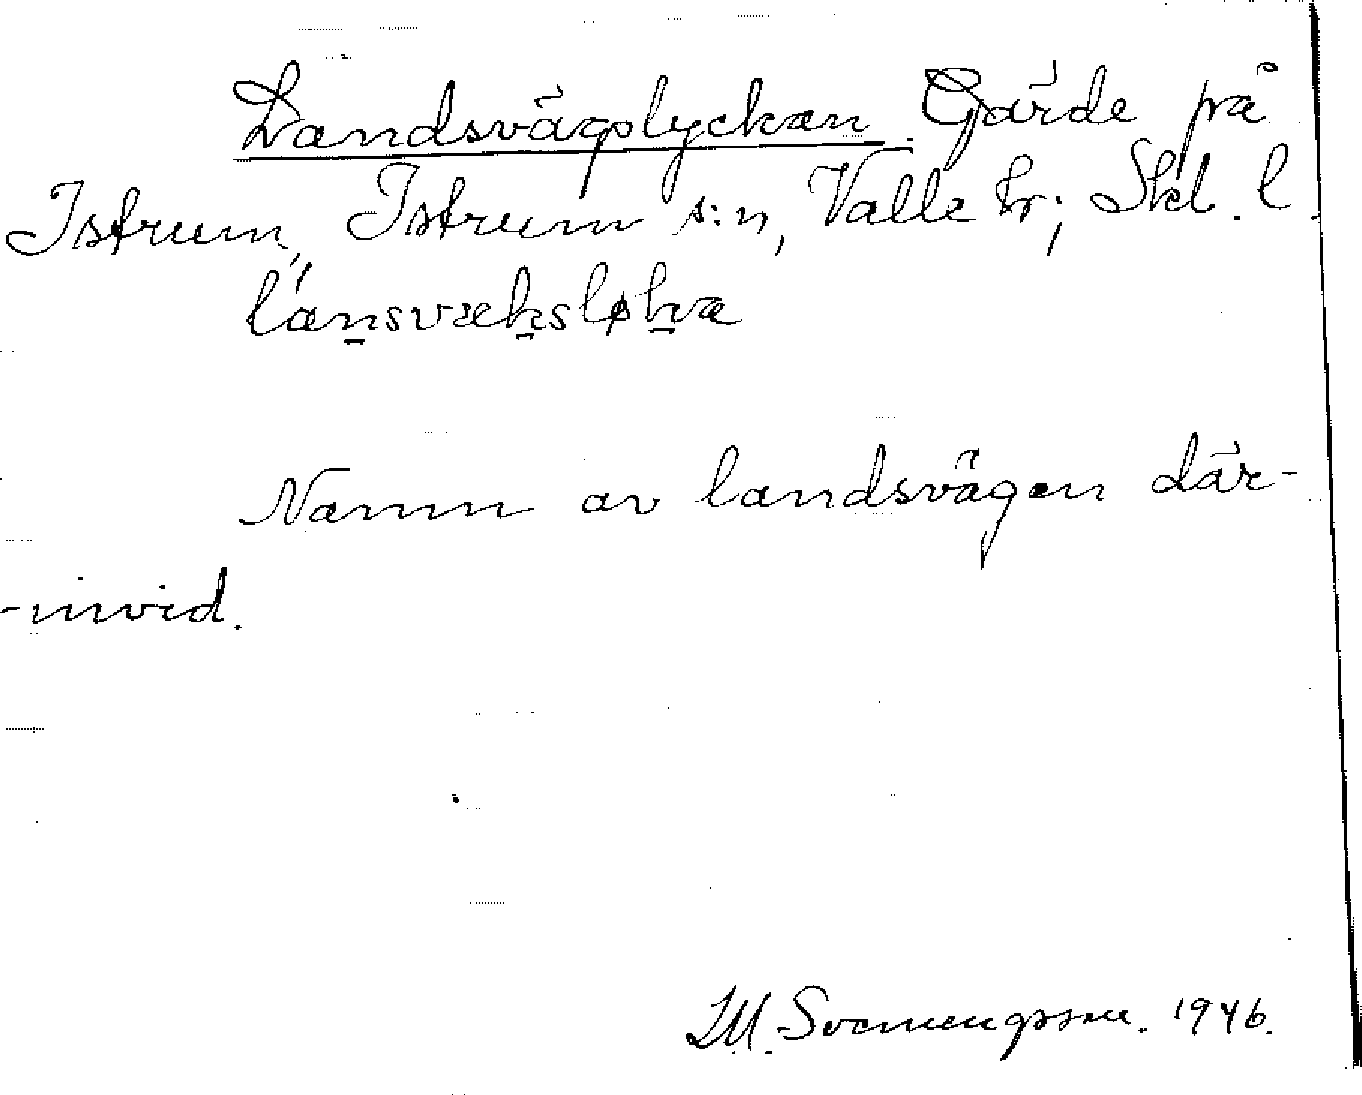 Landsvägslyckan. Gärde på
Istrum, Istrum s:n, Valle hr; Skb. l.
lánsvæksløka
Namn av landsvägen där-
-invid.
1946.